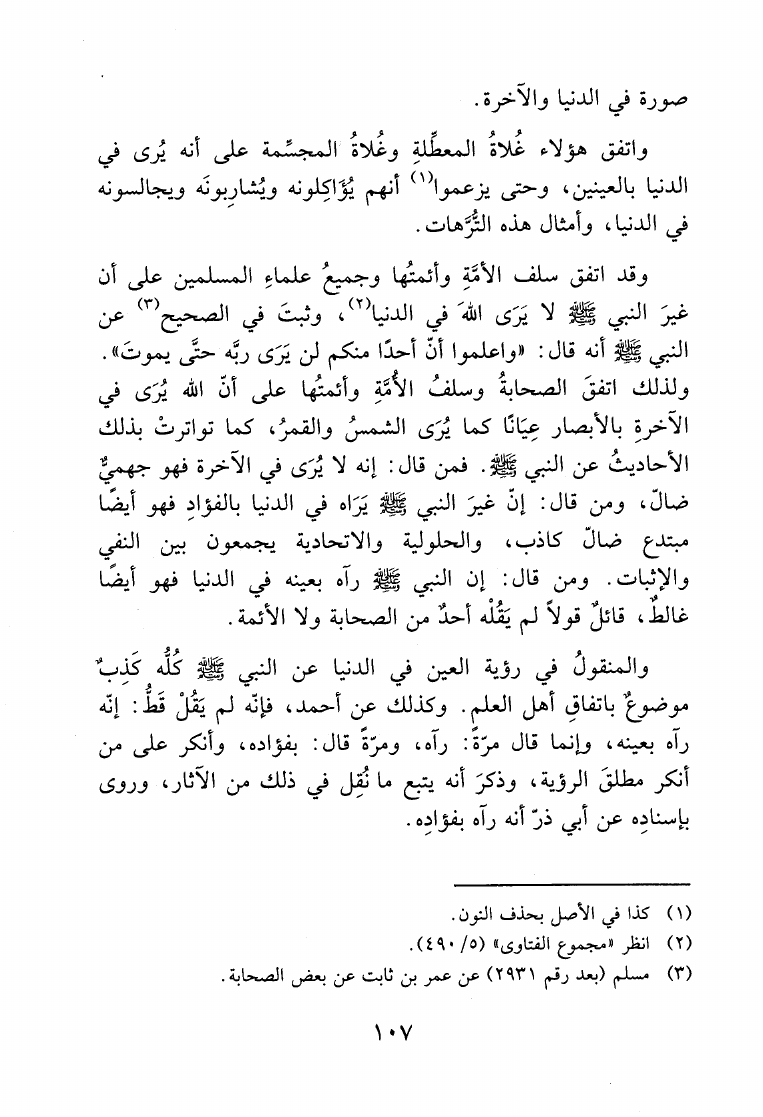 صورة في الدنيا والآخرة.
واتفق هؤلاء غُلاةُ المعطِّلةِ وغُلاةُ المجسِّمة على أنه يُرى في
الدنيا بالعينين، وحتى يزعموا(١) أنهم يُؤَاكِلونه ويُشارِبونَه ويجالسونه
في الدنيا، وأمثال هذه التُّرَّهات.
وقد اتفق سلف الأمَّةِ وأئمتُها وجميعُ علماءِ المسلمين على أن
غيرَ النبي ﷺ لا يَرَى اللهَ في الدنيا(٢)، وثبتَ في الصحيح(٣) عن
النبي ﷺ أنه قال: «واعلموا أنّ أحدًا منكم لن يَرَى ربَّه حتَّى يموتَ».
ولذلك اتفقَ الصحابةُ وسلفُ الأُمَّةِ وأئمتُها على أنّ الله يُرَى في
الآخرةِ بالأبصار عِيَانًا كما يُرَى الشمسُ والقمرُ، كما تواترتْ بذلك
الأحاديثُ عن النبي ﷺ. فمن قال: إنه لا يُرَى في الآخرة فهو جهميٌّ
ضالّ، ومن قال: إنّ غيرَ النبي ﷺ يَرَاه في الدنيا بالفؤادِ فهو أيضًا
مبتدع ضالّ كاذب، والحلولية والاتحادية يجمعون بين النفي
والإثبات. ومن قال: إن النبي ﷺ رآه بعينه في الدنيا فهو أيضًا
غالطٌ، قائلٌ قولاً لم يَقُلْه أحدٌ من الصحابة ولا الأئمة.
والمنقولُ في رؤية العين في الدنيا عن النبي ﷺ كُلُّه كَذِبٌ
موضوعٌ باتفاقِ أهل العلم. وكذلك عن أحمد، فإنّه لم يَقُلْ قَطُّ: إنّه
رآه بعينه، وإنما قال مرّةً: رآه، ومرّةً قال: بفؤاده، وأنكر على من
أنكر مطلقَ الرؤية، وذكرَ أنه يتبع ما نُقِل في ذلك من الآثار، وروى
بإسنادِه عن أبي ذرّ أنه رآه بفؤادِه.
(١) كذا في الأصل بحذف النون.
(٢) انظر «مجموع الفتاوى» (٥/ ٤٩٠).
(٣) مسلم (بعد رقم ٢٩٣١) عن عمر بن ثابت عن بعض الصحابة.
١٠٧